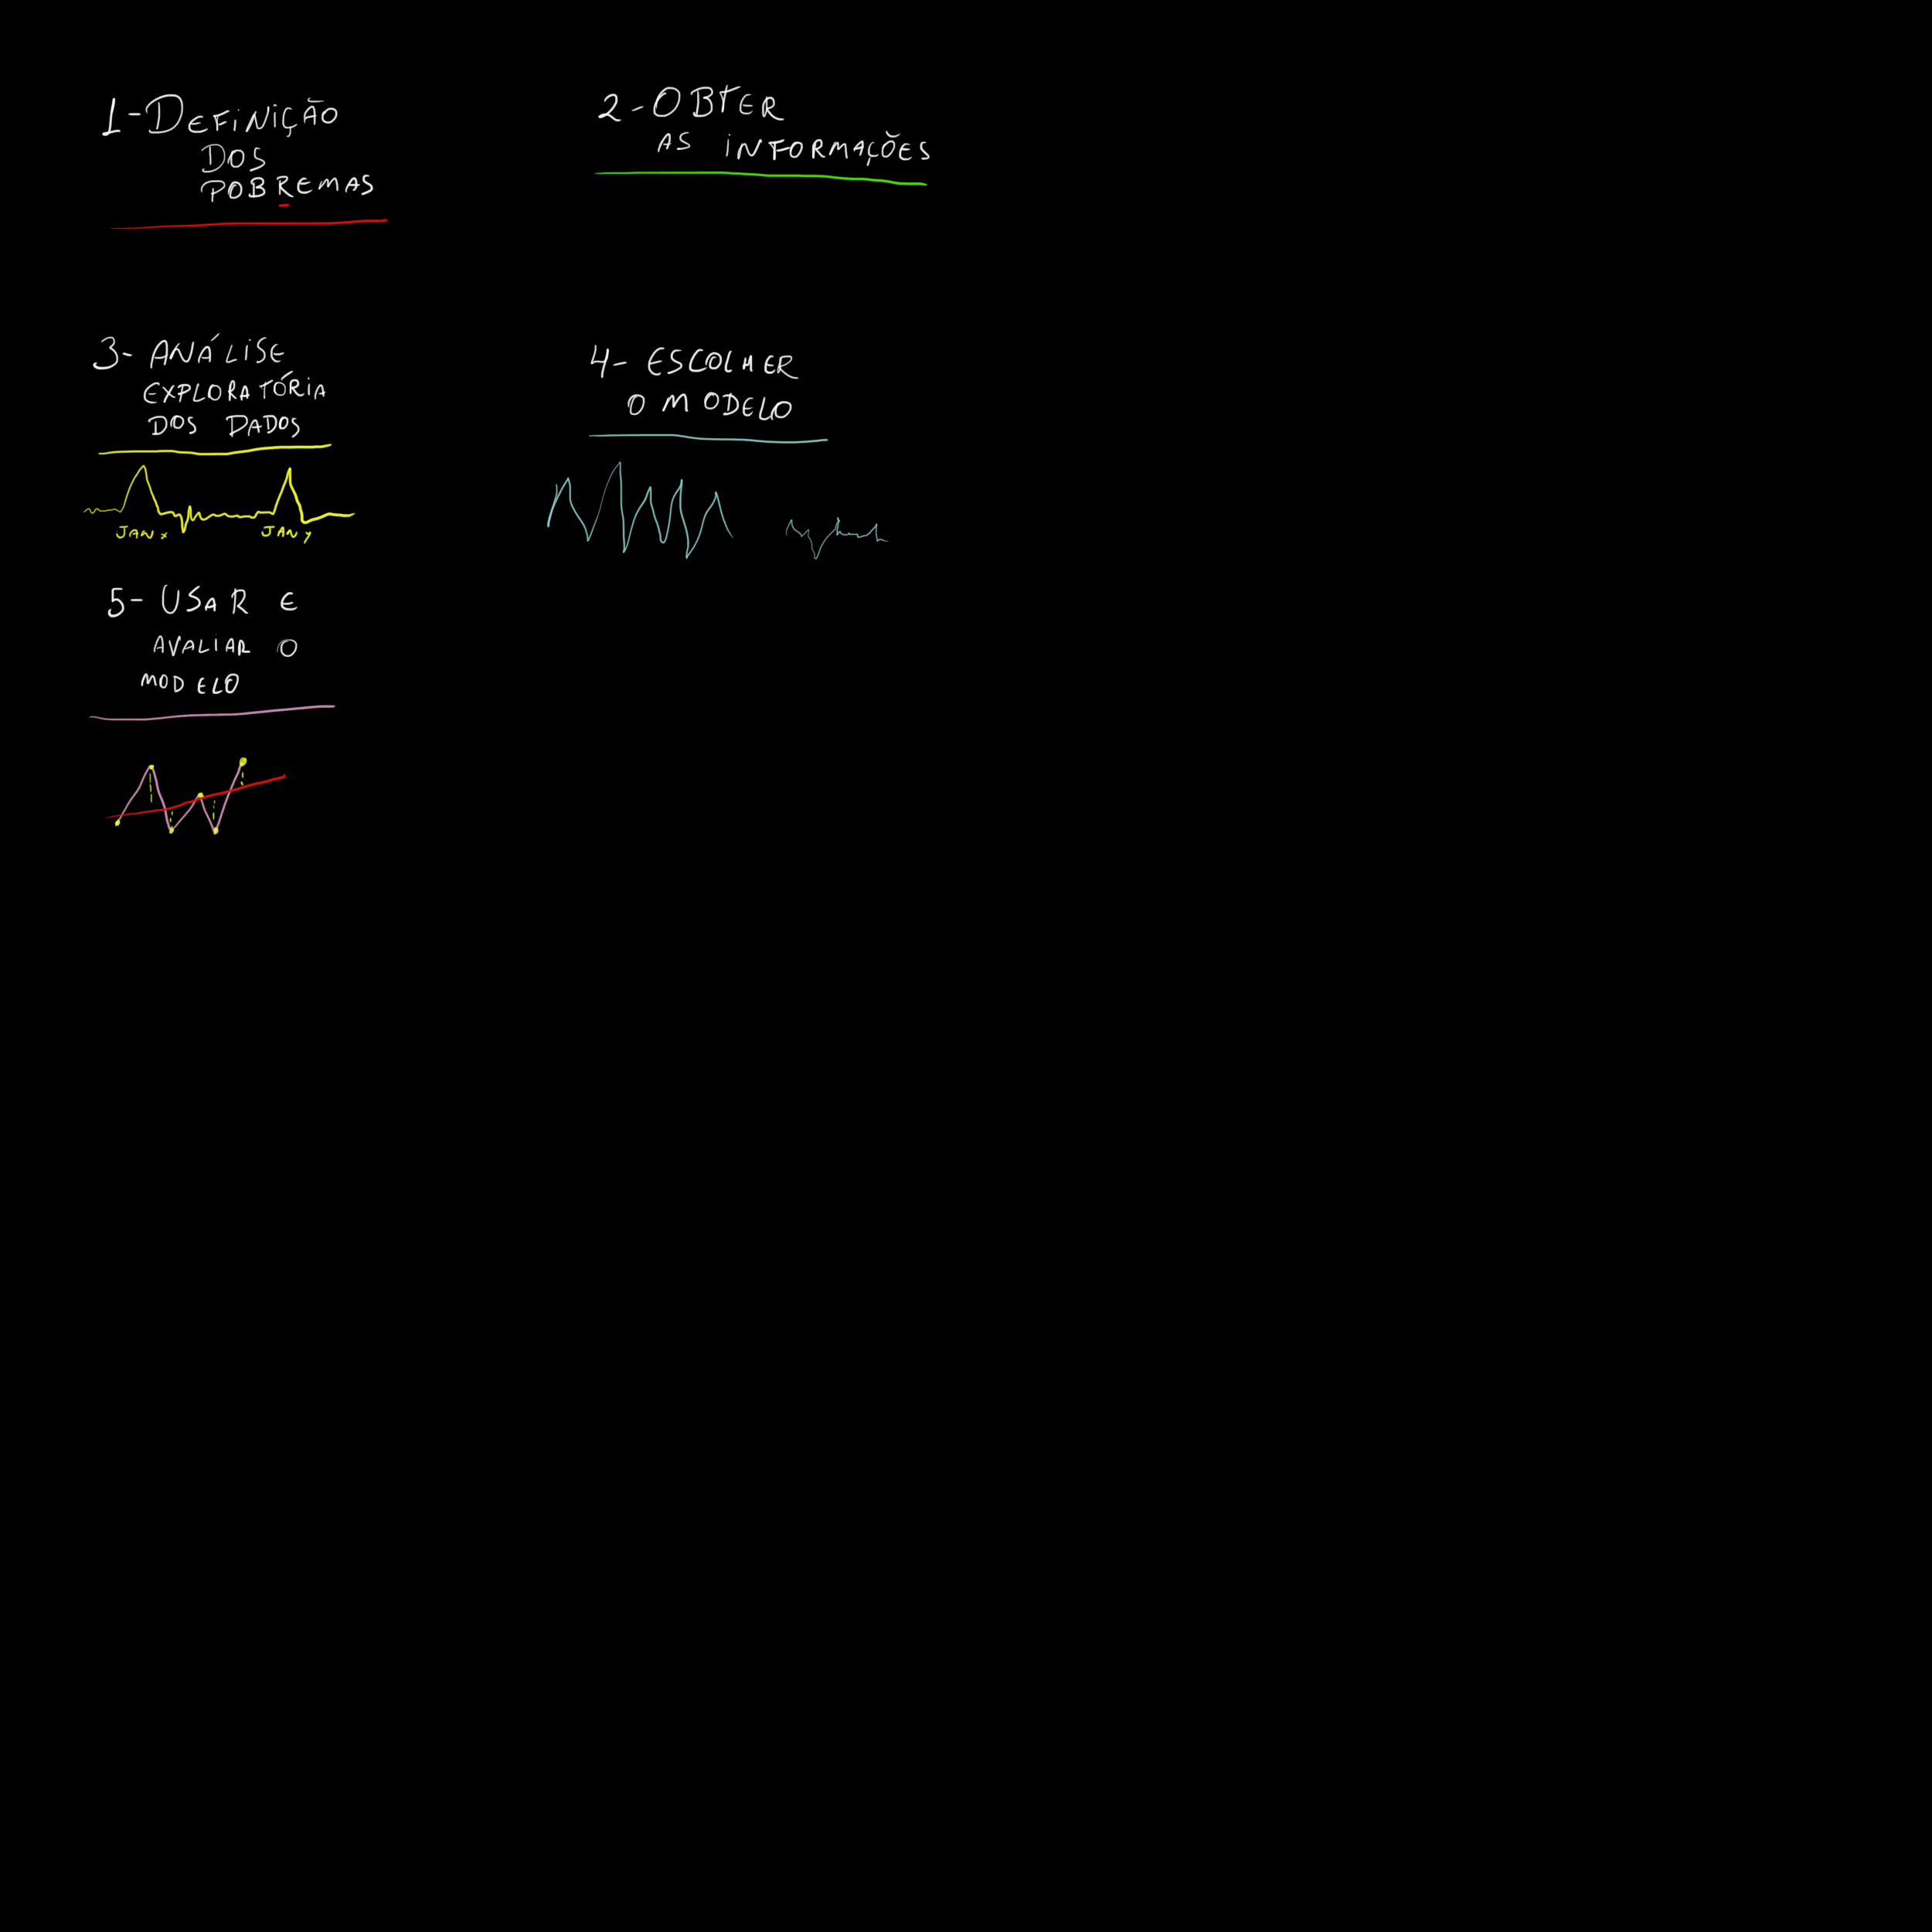 1-DEFINIÇÃO
DOS
POBREMAS
2-OBTER
AS INFORMAÇÕES
3- ANÁLISE
EXPLORATÓRIA
DOS DADOS
JAN x
JAN y
4- ESCOLHER
O MODELO
5- USAR E
AVALIAR O
MODELO